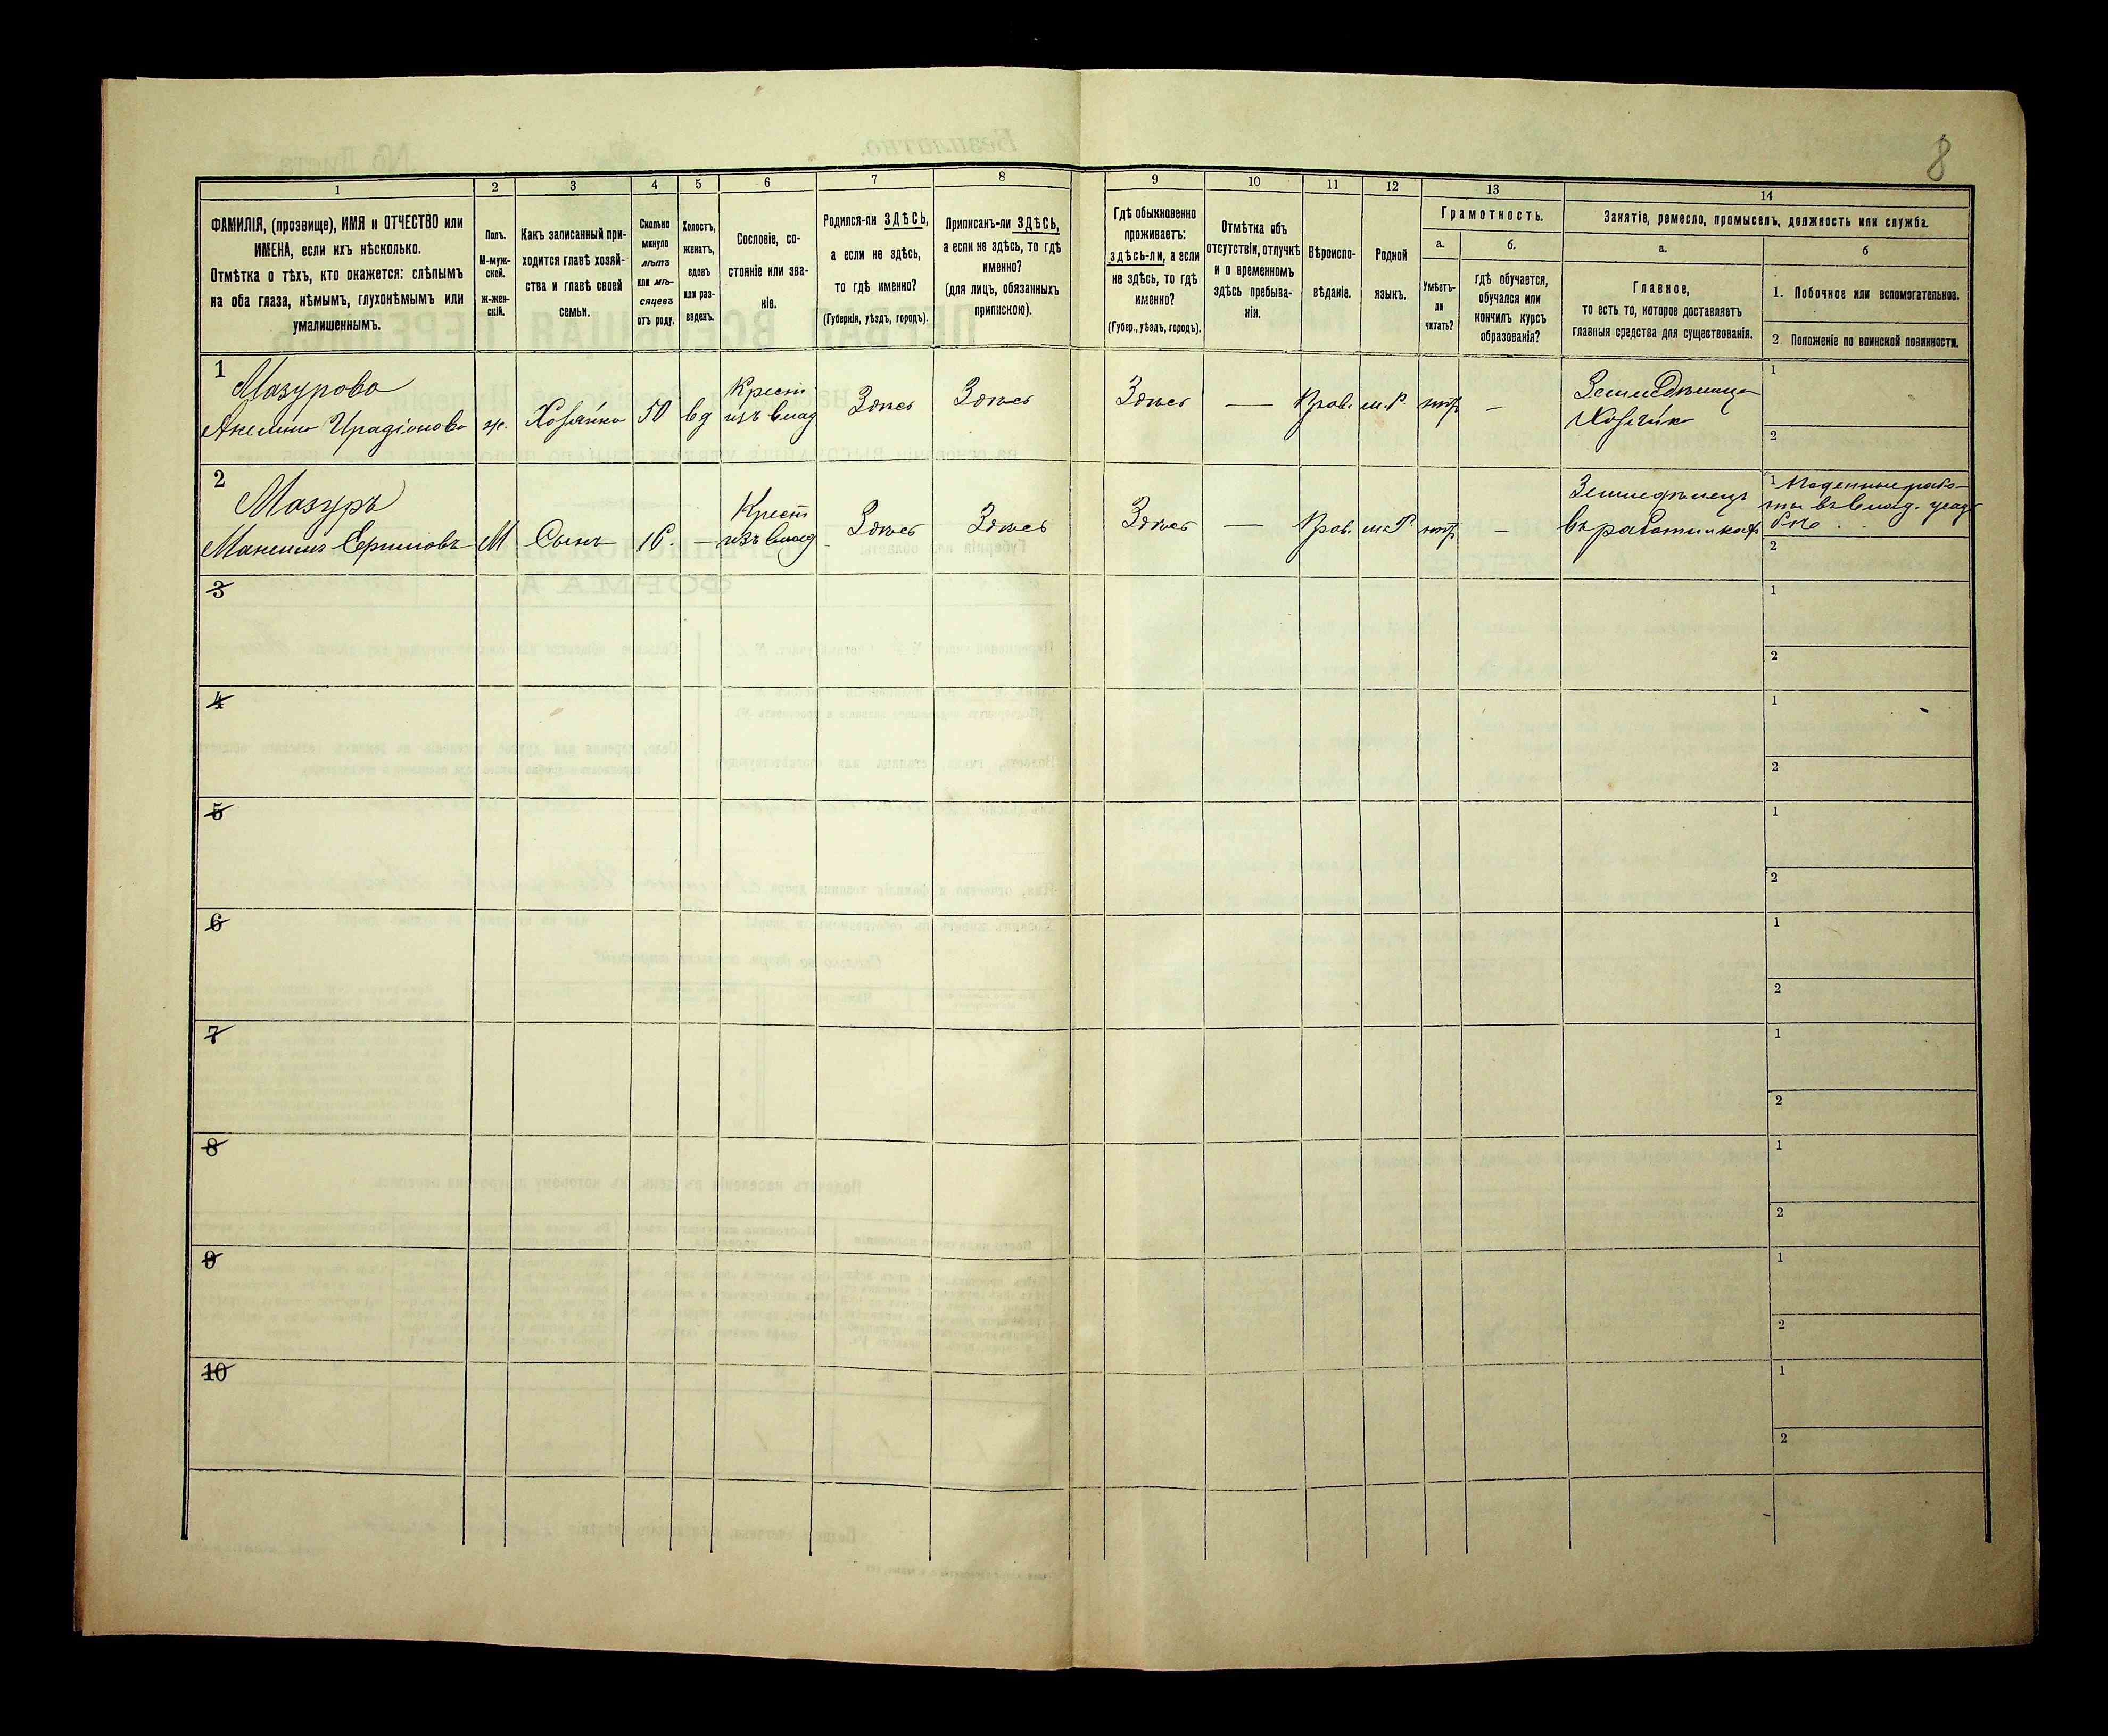 8
1 2 3 4 5 6 7 8 9 10 11 12 13 14
ФАМИЛІЯ, (прозвище), ИМЯ и ОТЧЕСТВО или
ИМЕНА, если ихъ нѣсколько.
Отмѣтка о тѣхъ, кто окажется: слѣпымъ
на оба глаза, нѣмымъ, глухонѣмымъ или
умалишеннымъ.
Полъ.
М-муж-
ской.
Ж-жен-
скій.
Какъ записанный при-
ходится главѣ хозяй-
ства и главѣ своей
семьи.
Сколько
минуло
лѣтъ
или мѣ-
сяцевъ
отъ роду.
Холостъ,
женатъ,
вдовъ
или раз-
веденъ.
Сословіе, со-
стояніе или зва-
ніе.
Родился-ли ЗДѢСЬ,
а если не здѣсь,
то гдѣ именно?
(Губернія, уѣздъ, городъ).
Приписанъ-ли ЗДѢСЬ,
а если не здѣсь, то гдѣ
именно?
(для лицъ, обязанныхъ
припискою).
Гдѣ обыкновенно
проживаетъ:
здѣсь-ли, а если
не здѣсь, то гдѣ
именно?
(Губер., уѣздъ, городъ).
Отмѣтка объ
отсутствіи, отлучкѣ
и о временномъ
здѣсь пребыва-
ніи.
Вѣроиспо-
вѣданіе.
Родной
языкъ.
Грамотность.
а.
Умѣетъ-
ли
читать?
б.
гдѣ обучается,
обучался или
кончилъ курсъ
образованія?
Занятіе, ремесло, промыселъ, должность или служба.
а.
Главное,
то есть то, которое доставляетъ
главныя средства для существованія.
б
1. Побочное или вспомогательное.
2. Положеніе по воинской повинности.
1
Мазурова
ж. Хозяйка 50 вд
Крест
изъ влад
Здѣсь Здѣсь Здѣсь — Прав. м.Р. нѣтъ —
Земледѣлица
Хозяйка
1
2
2
Мазуръ
М Сынъ 16. —
Крест
изъ влад
Здѣсь Здѣсь Здѣсь — Прав. м.Р. нѣтъ —
Земледѣлецъ
въ работникахъ
1 Поденные рабо-
ты въ влад. усадь
бѣ
2
3
1
2
4
1
2
5
1
2
6
1
2
7
1
2
8
1
2
9
1
2
10
1
2